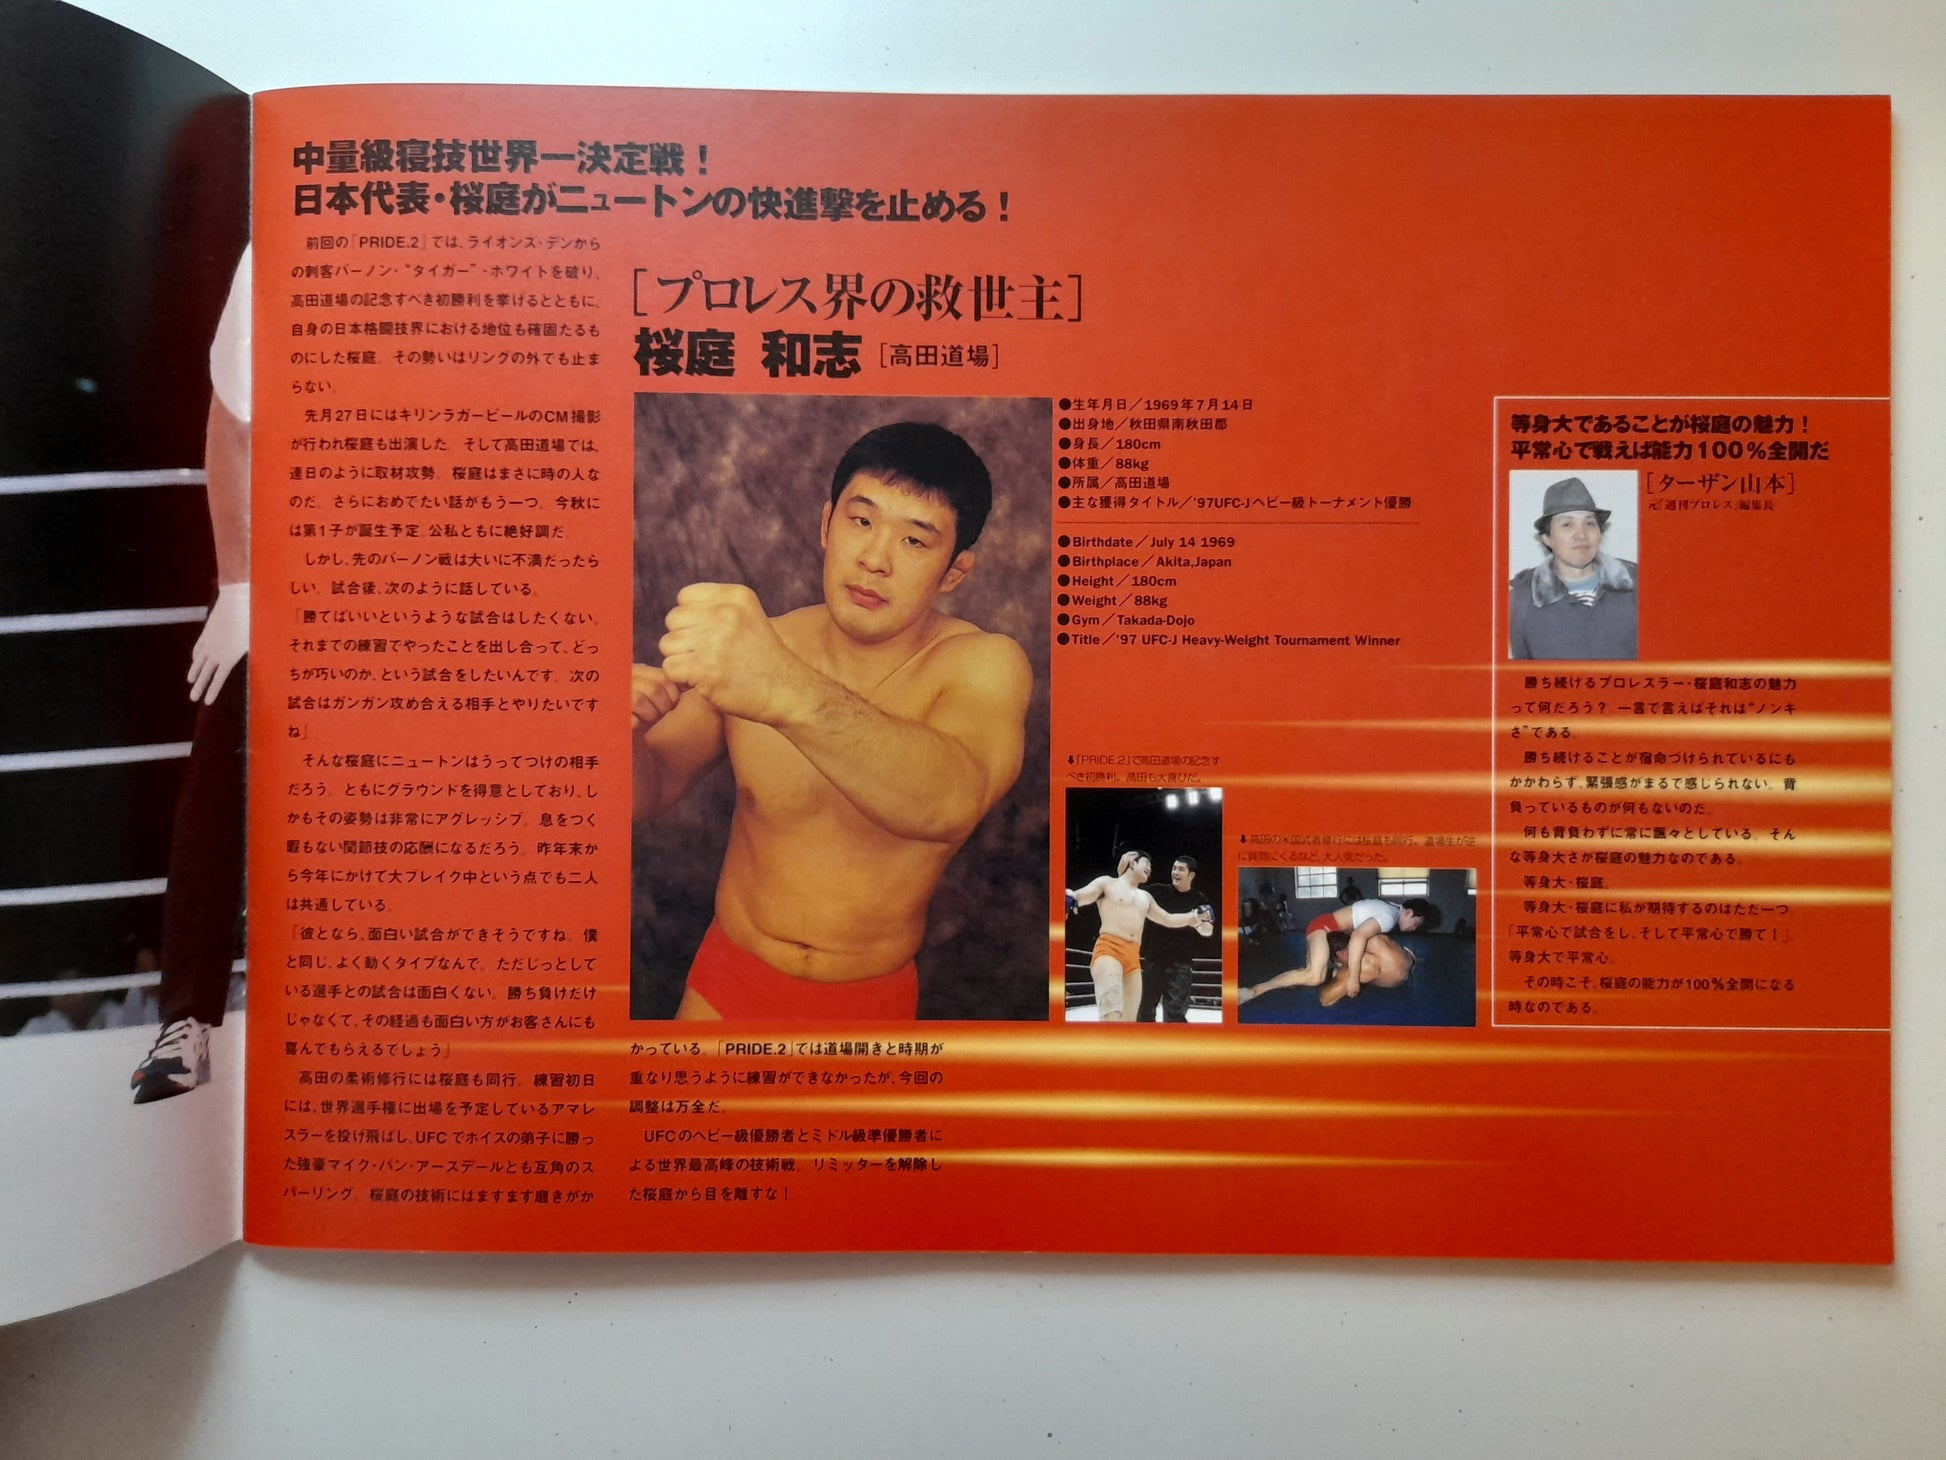 中量級寝技世界一決定戦！
日本代表・桜庭がニュートンの快進撃を止める！
前回の「PRIDE.2」では、ライオンズ・デンから
の刺客バーノン・“タイガー”・ホワイトを破り、
高田道場の記念すべき初勝利を挙げるとともに、
自身の日本格闘技界における地位も確固たるも
のにした桜庭。その勢いはリングの外でも止ま
らない。
先月27日にはキリンラガービールのCM撮影
が行われ桜庭も出演した。そして高田道場では、
連日のように取材攻勢。桜庭はまさに時の人な
のだ。さらにおめでたい話がもう一つ。今秋に
は第1子が誕生予定。公私ともに絶好調だ。
しかし、先のバーノン戦は大いに不満だったら
しい。試合後、次のように話している。
「勝てばいいというような試合はしたくない。
それまでの練習でやったことを出し合って、どっ
ちが巧いのか、という試合をしたいんです。次の
試合はガンガン攻め合える相手とやりたいです
ね」
そんな桜庭にニュートンはうってつけの相手
だろう。ともにグラウンドを得意としており、し
かもその姿勢は非常にアグレッシブ。息をつく
暇もない関節技の応酬になるだろう。昨年末か
ら今年にかけて大ブレイク中という点でも二人
は共通している。
「彼となら、面白い試合ができそうですね。僕
と同じ、よく動くタイプなんで。ただじっとして
いる選手との試合は面白くない。勝ち負けだけ
じゃなくて、その経過も面白い方がお客さんにも
喜んでもらえるでしょう」
高田の柔術修行には桜庭も同行。練習初日
には、世界選手権に出場を予定しているアマレ
スラーを投げ飛ばし、UFCでホイスの弟子に勝っ
た強豪マイク・バン・アースデールとも互角のス
パーリング。桜庭の技術にはますます磨きがか
かっている。「PRIDE.2」では道場開きと時期が
重なり思うように練習ができなかったが、今回の
調整は万全だ。
UFCのヘビー級優勝者とミドル級準優勝者に
よる世界最高峰の技術戦。リミッターを解除し
た桜庭から目を離すな！
［プロレス界の救世主］
桜庭 和志［高田道場］
●生年月日／1969年7月14日
●出身地／秋田県南秋田郡
●身長／180cm
●体重／88kg
●所属／高田道場
●主な獲得タイトル／'97UFC-Jヘビー級トーナメント優勝
●Birthdate／July 14 1969
●Birthplace／Akita,Japan
●Height／180cm
●Weight／88kg
●Gym／Takada-Dojo
●Title／'97 UFC-J Heavy-Weight Tournament Winner
⬇「PRIDE.2」で高田道場の記念す
べき初勝利。高田も大喜びだ。
⬇高田の米国武者修行には桜庭も同行。道場生が逆
に質問にくるなど、大人気だった。
等身大であることが桜庭の魅力！
平常心で戦えば能力100％全開だ
［ターザン山本］
元『週刊プロレス』編集長
勝ち続けるプロレスラー・桜庭和志の魅力
って何だろう？ 一言で言えばそれは“ノンキ
さ”である。
勝ち続けることが宿命づけられているにも
かかわらず、緊張感がまるで感じられない。背
負っているものが何もないのだ。
何も背負わずに常に飄々としている。そん
な等身大さが桜庭の魅力なのである。
等身大・桜庭。
等身大・桜庭に私が期待するのはただ一つ。
「平常心で試合をし、そして平常心で勝て！」。
等身大で平常心。
その時こそ、桜庭の能力が100％全開になる
時なのである。